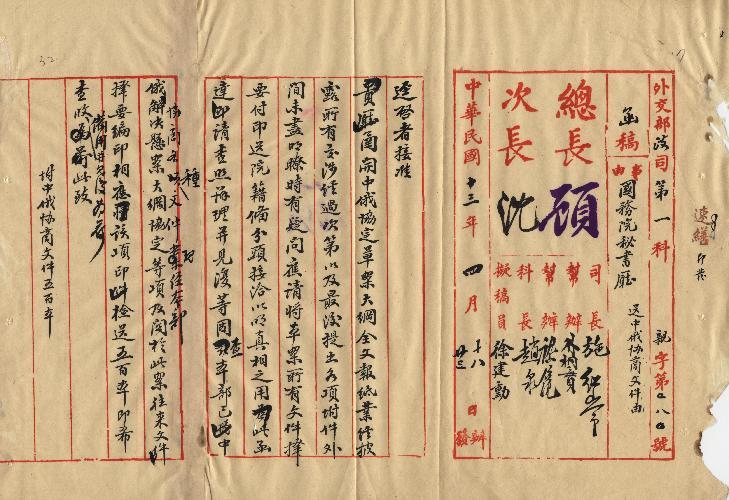 外交部法司第一科 親字第 八〇號
函稿
事由
國務院秘書廳 送中俄協商文件由
速繕
印發
總長顧
次長沈
司長施
幫辦
幫辦
科長趙
擬稿員徐建勳
中華民國十三年四月十八日辦
廿三 發
逕啓者接准
貴廳函開中俄協定草案大綱全文報紙業經披
露所有交涉經過次第以及最後提出各項附件外
間未盡明瞭時有疑問應請將本案所有文件擇
要付印送院藉備分頭接洽以明真相之用相應函
達即請查照辦理并見復等因查本部已將中
俄解決懸案大綱協定等項及關於此案往來文件
擇要編印相應將該項印件檢送五百本即希
查收 此致
附中俄協商文件五百本